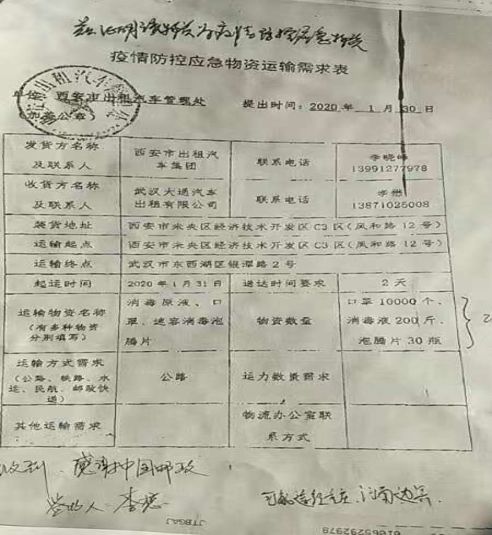 兹证明该物资为疫情防控应急物资
疫情防控应急物资运输需求表
西安市出租汽车管理处
公章
提出时间：2020 年 1 月 30 日
发货方名称及联系人 西安市出租汽车集团 联系电话 李晓峰 13991277978
收货方名称及联系人 武汉大通汽车出租有限公司 联系电话 李懋 13871025008
装货地址 西安市未央区经济技术开发区C3区(凤和路12号)
运输起点 西安市未央区经济技术开发区C3区(凤和路12号)
运输终点 武汉市东西湖区银潭路2号
起运时间 2020年1月31日 送达时间要求 2天
运输物资名称(有多种物资分别填写) 消毒原液、口罩、速容消毒泡腾片 物资数量 口罩10000个、消毒液200斤、泡腾片30瓶
运输方式需求(公路、铁路、水运、民航、邮政快递) 公路 运力数量需求
其他运输需求 物流办公室联系方式
收到 感谢中国邮政
签收人：李懋
JTBGAJ